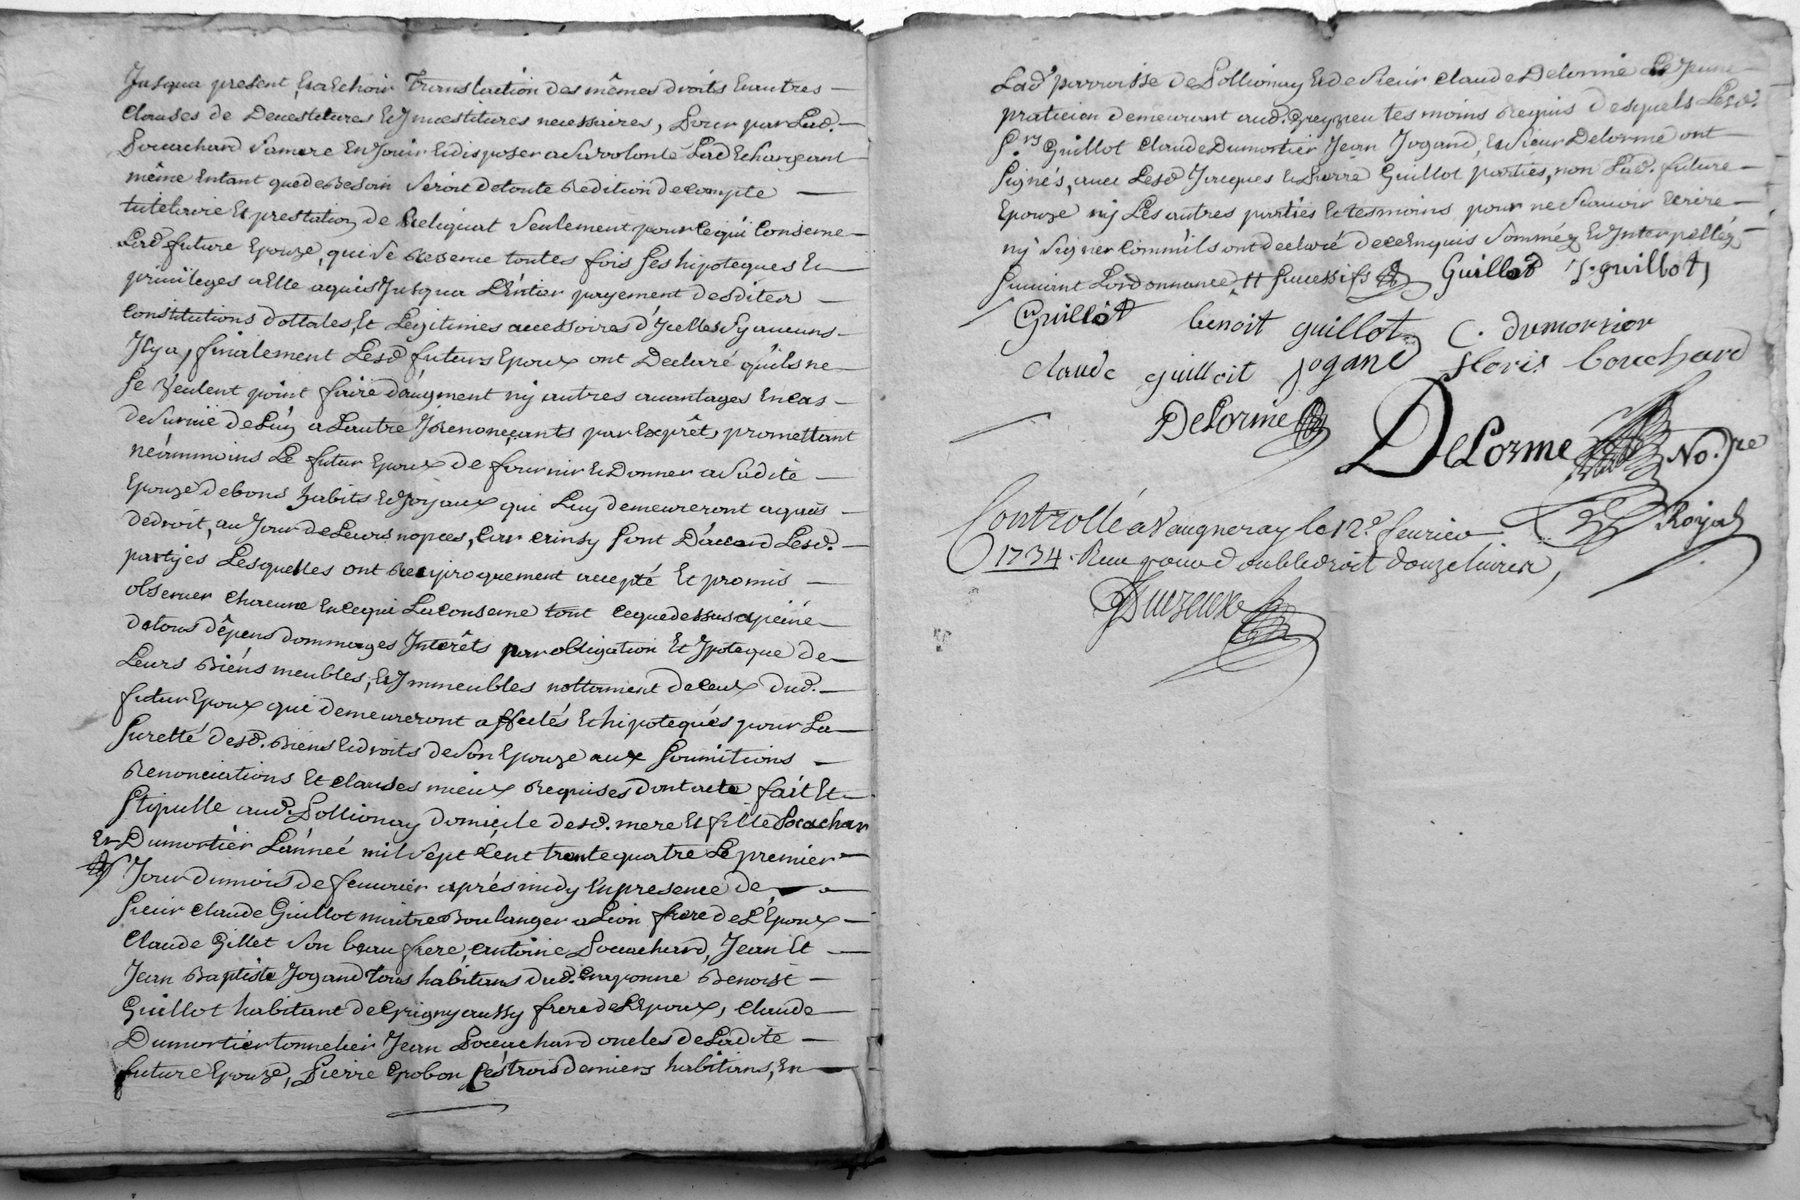 Jusqua present, Et a Echoir Translation des mêmes droits Et autres
Clauses de Devestitures Et Jnvestitures necessaires, Pour par Lad.
Bouchard Samere En Jouir Et disposer a Sa volonté Lad Echangeant
même Entant que de Besoin Seroit detoute Redition de compte
tutelaire Et prestation de Reliquat Seulement pour Ce qui Conserne
Lad future Epouze, qui Se Reserve toutes fois Ses hipoteques Et
privileges a Elle aquis Jusqua L'Entier payement desdites
Constitutions dottales, Et Legitimes accessoires d'Jcelles Sy aucuns
Jl y a, finalement Lesd futurs Epoux ont Declaré qu'ils ne
Se Veulent point faire d'augment ny autres avantages En cas
de Survie de Luy a Lautre J Renonçants par Exprêt promettant
neámmoins Le futur Epoux de fournir Et Donner a Sadite
Epouze de bons habits Et Joyaux qui Luy demeureront aquis
dedroit, au Jour de Leurs nopces, Car ainsy Sont D'accord Lesd.
partjes Lesquelles ont Reciproquement accepté Et promis
observer chacune En ce qui La conserne tout ce que dessus a peine
de tous dêpens dommages Jnterêts par obligation Et Jpoteque de
Leurs Biéns meubles, Et Jmmeubles nottament de Ceux dud.
futur Epoux qui demeureront affectés Et hipotequés pour La
Suretté desd. Biéns Et droits de Son Epouze aux Soumitions
Renonciations Et Clauses mieux Requises dont acte fait Et
Stipullé aud. Pollionay domicile desd. mere Et fille Bouchar
Et Dumortiér L'année mil Sept Cent trente quatre Le premier
Jour du mois de fevrier aprés midy En presence de
Sieur Claude Guillot maitre Boulanger a Lion frere de L'Epoux
Claude Gillet Son beau frere, Antoine Bouchard, Jean Et
Jean Baptiste Jogand tous habitans dud. Benoist
Guillot habitant de Grigny aussy frere de L'Epoux, Claude
Dumortier tonnelier Jean Bouchard oncles de Ladite
future Epouze, Pierre Les trois derniers habitans, En
Lad parroisse de Pollionay Et de Sieur Claude Delorme Le Jeune
praticien demeurant aud. tesmoins Requis desquels Lesd.
S.rs Guillot Claude Dumortier Jean Jogand, Et Sieur Delorme ont
Signés, avec Lesd Jacques Et Pierre Guillot parties, non Lad. future
Epouze ny Les autres parties Et tesmoins pour ne Scavoir Ecrire
ny Signer Comm'ils ont declaré de ce Enquis Sommêz Et Jnterpellêz
Suivant Lordonnance, Successifs Guillod J. guillot
Guillót benoit guillot C. dumortier
claude guilloit jogand floris bouchard
Delorme Delorme No.re
Royal
Controllé a Vaugneray le 12e. fevrier
1734. Receu douze livres,